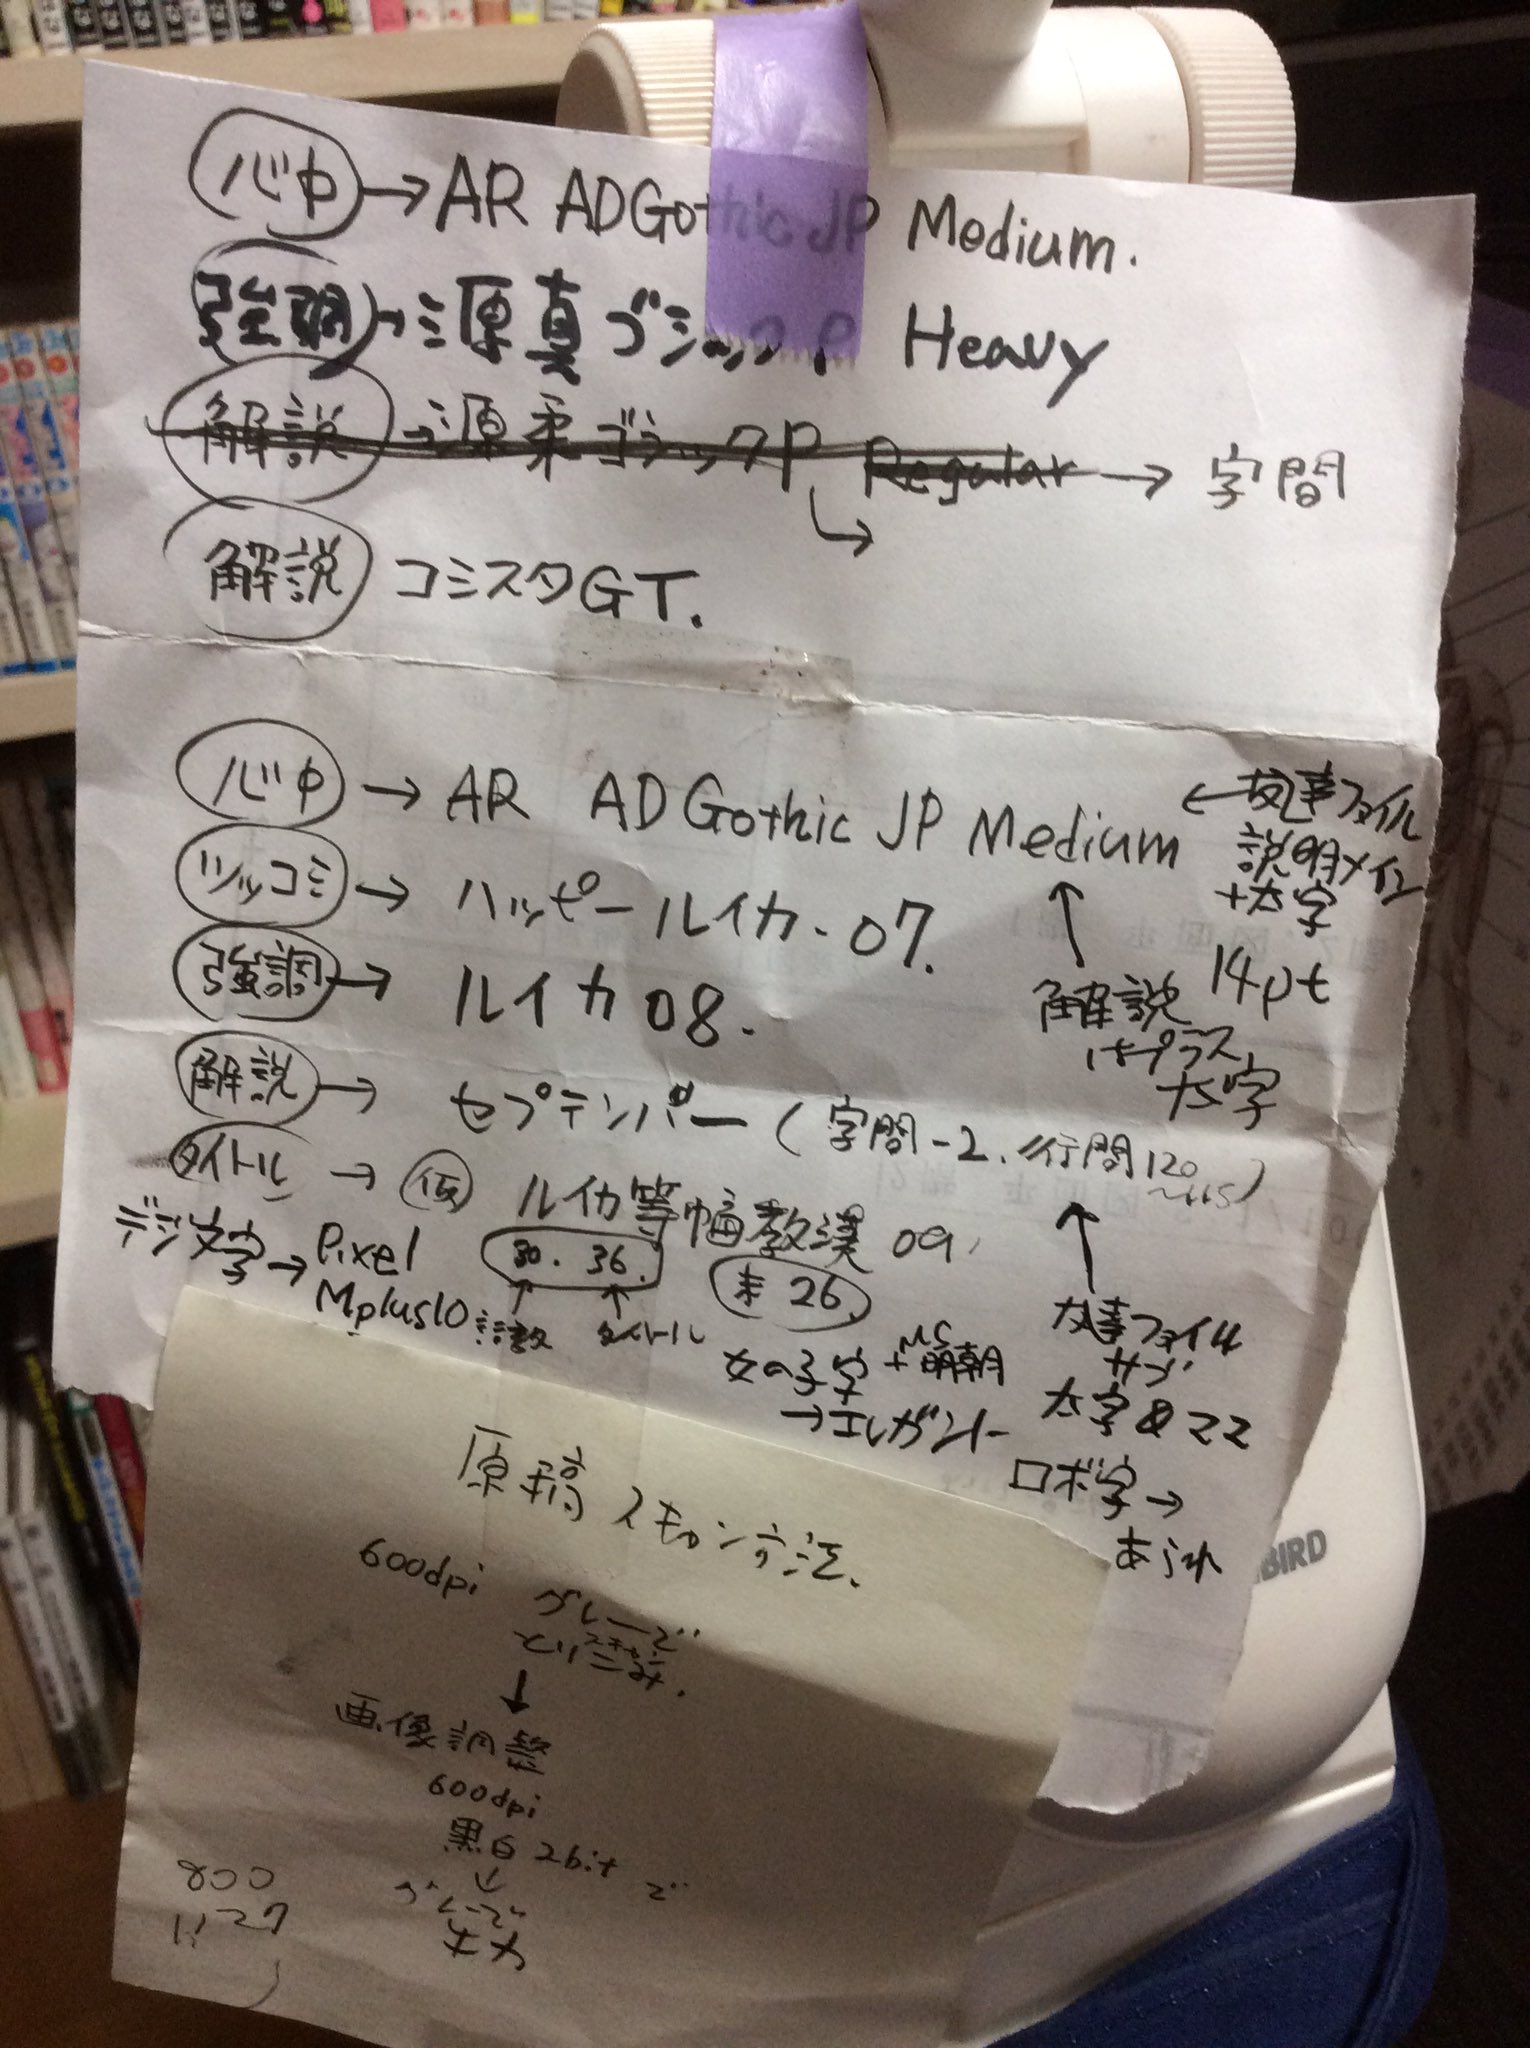 心中→AR ADGothic JP Medium.
強調→源真ゴシックP Heavy
解説→源柔ゴシックP Regular→字間
解説 コミスタGT.
心中→AR ADGothic JP Medium
←友達ファイル
説明メイン
+太字
14pt
ツッコミ→ハッピールイカ-07.
強調→ルイカ08.
↑
解説
はプラス
太字
解説→セプテンバー(字間-2.行間120
~115)
タイトル→仮 ルイカ等幅教漢09
デジ文字→Pixel
Mplus10
30. 36.
↑ ↑
話数 タイトル
26.
↑
友達ファイル
サブ
太字&22
女の子字+MS明朝
→エレガント
ロボ字→
あられ
BIRD
原稿スキャン方法.
600dpi グレーで
スキャン
とりこみ.
↓
画像調整
600dpi
黒白2bitで
↓
グレーで